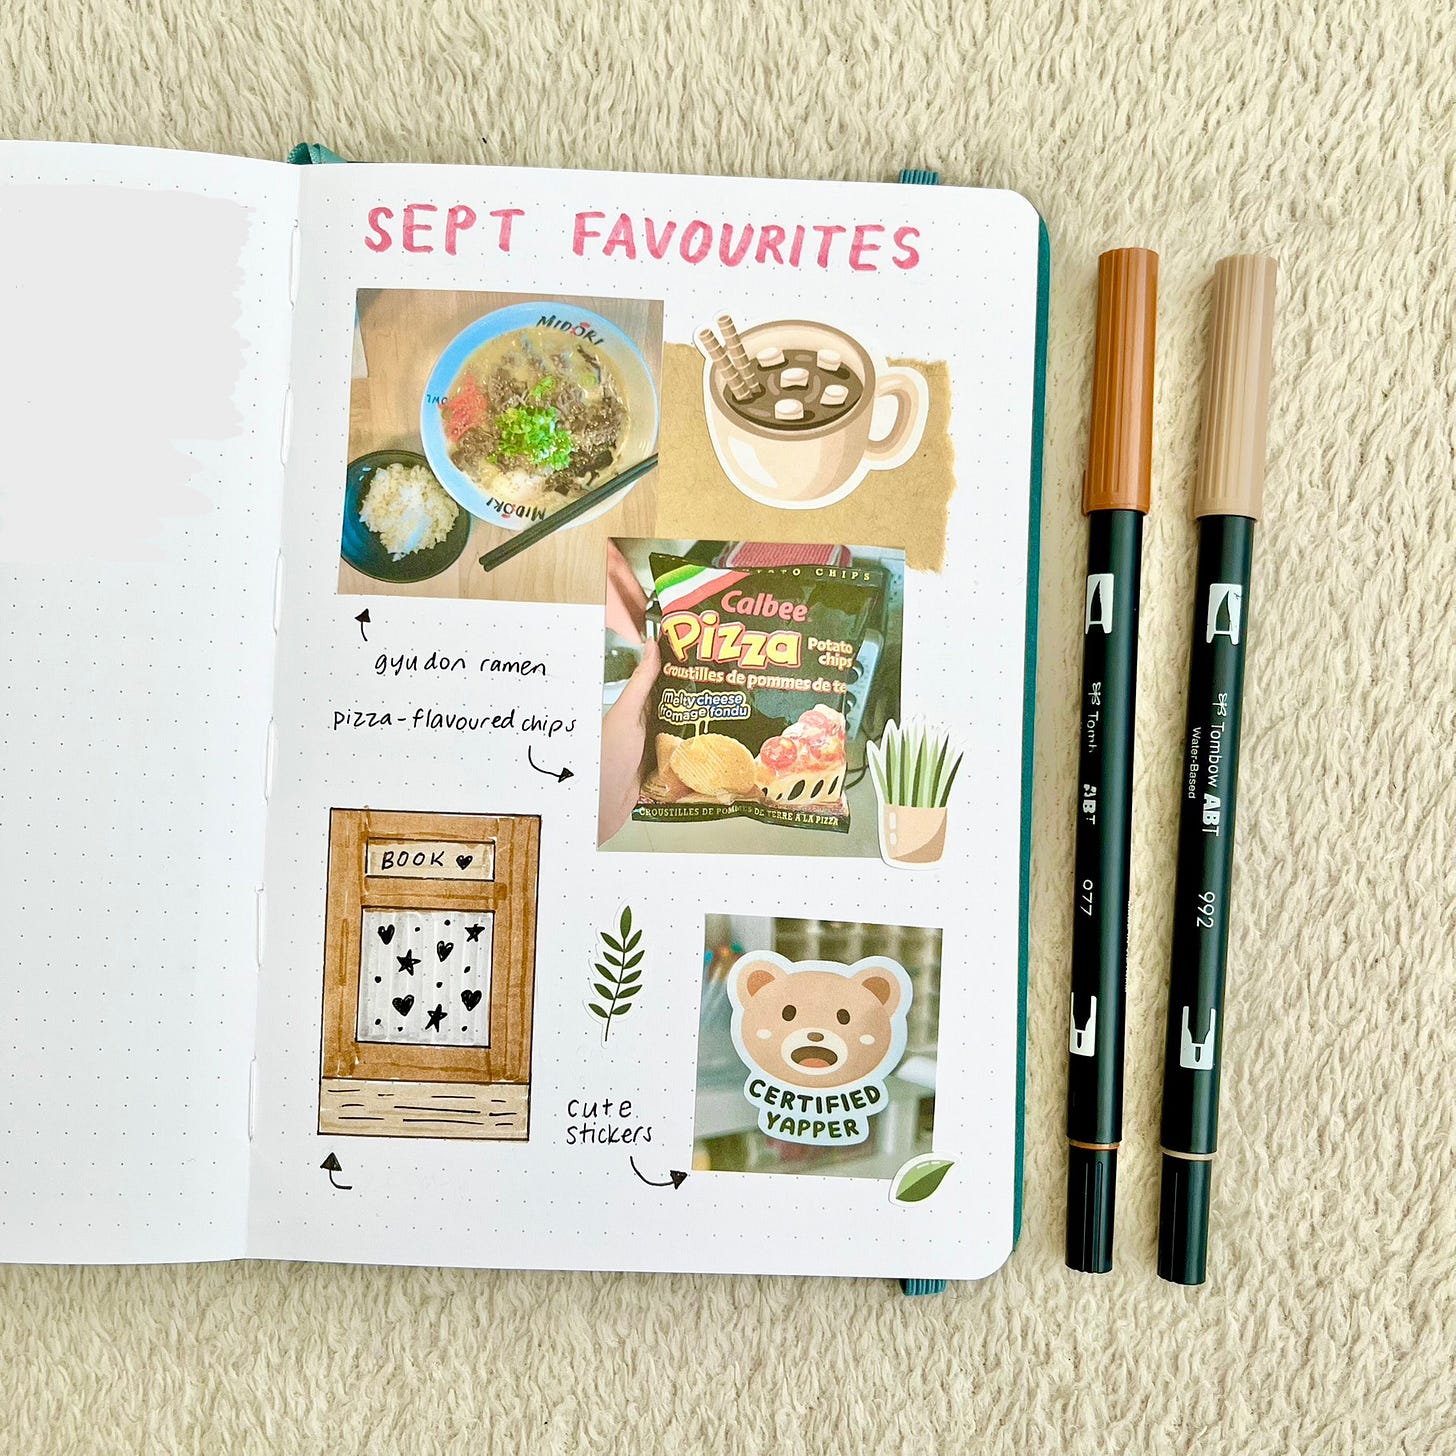 SEPT FAVOURITES
MIDORI
BOWL
MIDORI
gyudon ramen
pizza-flavoured chips
POTATO CHIPS
Calbee
Pizza
Potato
chips
Croustilles de pommes de te
melty cheese
fromage fondu
CROUSTILLES DE POMMES DE TERRE A LA PIZZA
BOOK
cute
stickers
CERTIFIED
YAPPER
Tomb
ABT
077
Tombow ABT
Water-Based
992